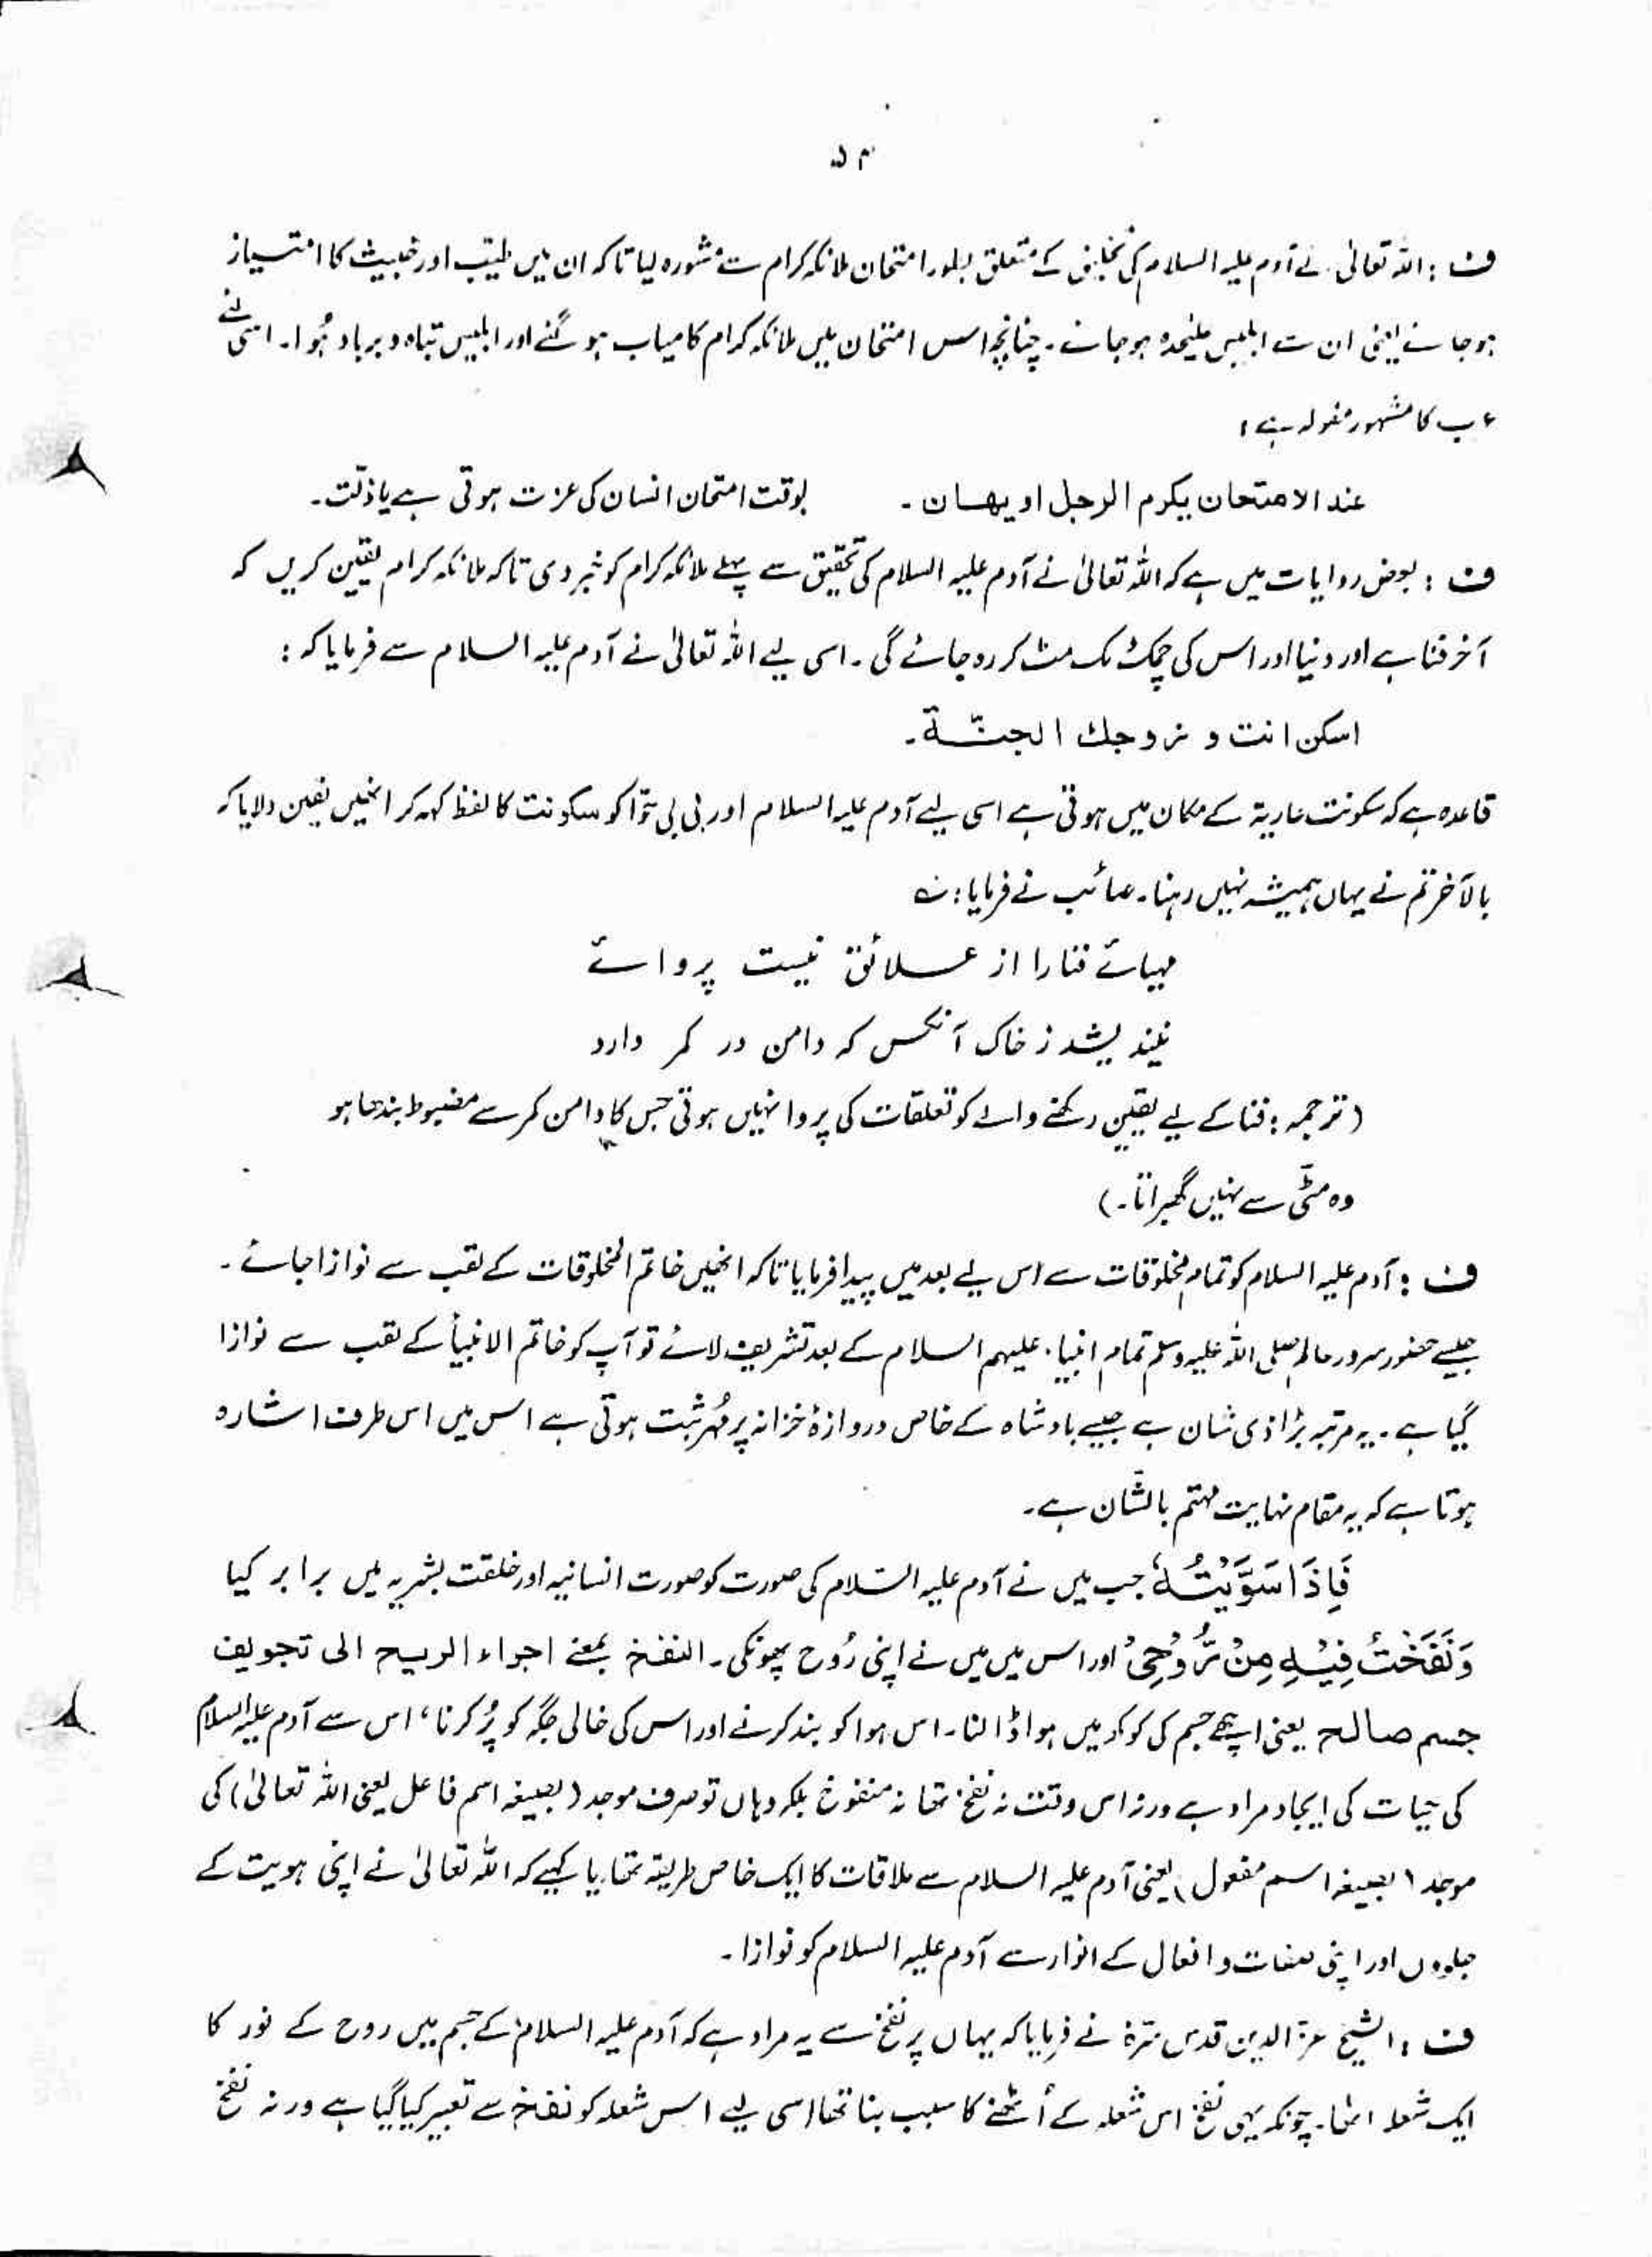 ۵۳
ف : اللہ تعالیٰ نے آدم علیہ السلام کی تخلیق کے متعلق بطور امتحان ملائکہ کرام سے مشورہ لیا تاکہ ان میں طیّب اور خبیث کا امتیاز
ہوجائے یعنی ان سے ابلیس علیحدہ ہوجائے۔ چنانچہ اس امتحان میں ملائکہ کرام کامیاب ہوگئے اور ابلیس تباہ و برباد ہُوا۔ اسی لئے
عرب کا مشہور مقولہ ہے :
عند الامتحان یکرم الرجل او یھان ۔ بوقت امتحان انسان کی عزت ہوتی ہے یا ذلّت۔
ف : بعض روایات میں ہے کہ اللہ تعالیٰ نے آدم علیہ السلام کی تحقیق سے پہلے ملائکہ کرام کو خبر دی تاکہ ملائکہ کرام یقین کریں کہ
آخر فنا ہے اور دنیا اور اس کی چمک مک مٹ کر رہ جائے گی ۔ اسی لیے اللہ تعالیٰ نے آدم علیہ السلام سے فرمایا کہ :
اسکن انت و زوجك الجنّة ۔
قاعدہ ہے کہ سکونت عاریۃ کے مکان میں ہوتی ہے اسی لیے آدم علیہ السلام اور بی بی حوّا کو سکونت کا لفظ کہہ کر انھیں یقین دلایا کہ
بالآخر تم نے یہاں ہمیشہ نہیں رہنا۔ صائب نے فرمایا : ؎
مہیائے فنا را از علائق نیست پروائے
نیندیشد ز خاک آنکس کہ دامن در کمر دارد
( ترجمہ : فنا کے لیے یقین رکھنے والے کو تعلقات کی پروا نہیں ہوتی جس کا دامن کمر سے مضبوط بندھا ہو
وہ مٹّی سے نہیں گھبراتا۔)
ف : آدم علیہ السلام کو تمام مخلوقات سے اس لیے بعد میں پیدا فرمایا تاکہ انھیں خاتم المخلوقات کے لقب سے نوازا جائے ۔
جیسے حضور سرور عالم صلی اللہ علیہ وسلم تمام انبیاء علیہم السلام کے بعد تشریف لائے تو آپ کو خاتم الانبیأ کے لقب سے نوازا
گیا ہے ۔ یہ مرتبہ بڑا ذی شان ہے جیسے بادشاہ کے خاص دروازۂ خزانہ پر مُہر ثبت ہوتی ہے اس میں اس طرف اشارہ
ہوتا ہے کہ یہ مقام نہایت مہتم بالشّان ہے ۔
فَاِذَا سَوَّیْتُہٗ جب میں نے آدم علیہ السّلام کی صورت کو صورت انسانیہ اور خلقت بشریہ میں برابر کیا
وَنَفَخْتُ فِیْہِ مِنْ رُّوْحِیْ اور اس میں میں نے اپنی رُوح پھونکی ۔ النفخ بمعنے اجراء الریح الی تجویف
جسم صالح یعنی اچھے جسم کی کوکہ میں ہوا ڈالنا۔ اس ہوا کو بند کرنے اور اس کی خالی جگہ کو پُر کرنا ، اس سے آدم علیہ السلام
کی حیات کی ایجاد مراد ہے ورنہ اس وقت نہ نفخ تھا نہ منفوخ بلکہ وہاں تو صرف موجد ( بصیغہ اسم فاعل یعنی اللہ تعالیٰ) کی
موجد ( بصیغہ اسم مفعول ) یعنی آدم علیہ السلام سے ملاقات کا ایک خاص طریقہ تھا یا کہیے کہ اللہ تعالیٰ نے اپنی ہویت کے
جلووں اور اپنی صفات و افعال کے انوار سے آدم علیہ السلام کو نوازا ۔
ف : الشیخ عزّ الدین قدس سرّہٗ نے فرمایا کہ یہاں پر نفخ سے یہ مراد ہے کہ آدم علیہ السلام کے جسم میں روح کے نور کا
ایک شعلہ اٹھا۔ چونکہ یہی نفخ اس شعلہ کے اُٹھنے کا سبب بنا تھا اسی لیے اس شعلہ کو نفخ سے تعبیر کیا گیا ہے ورنہ نفخ